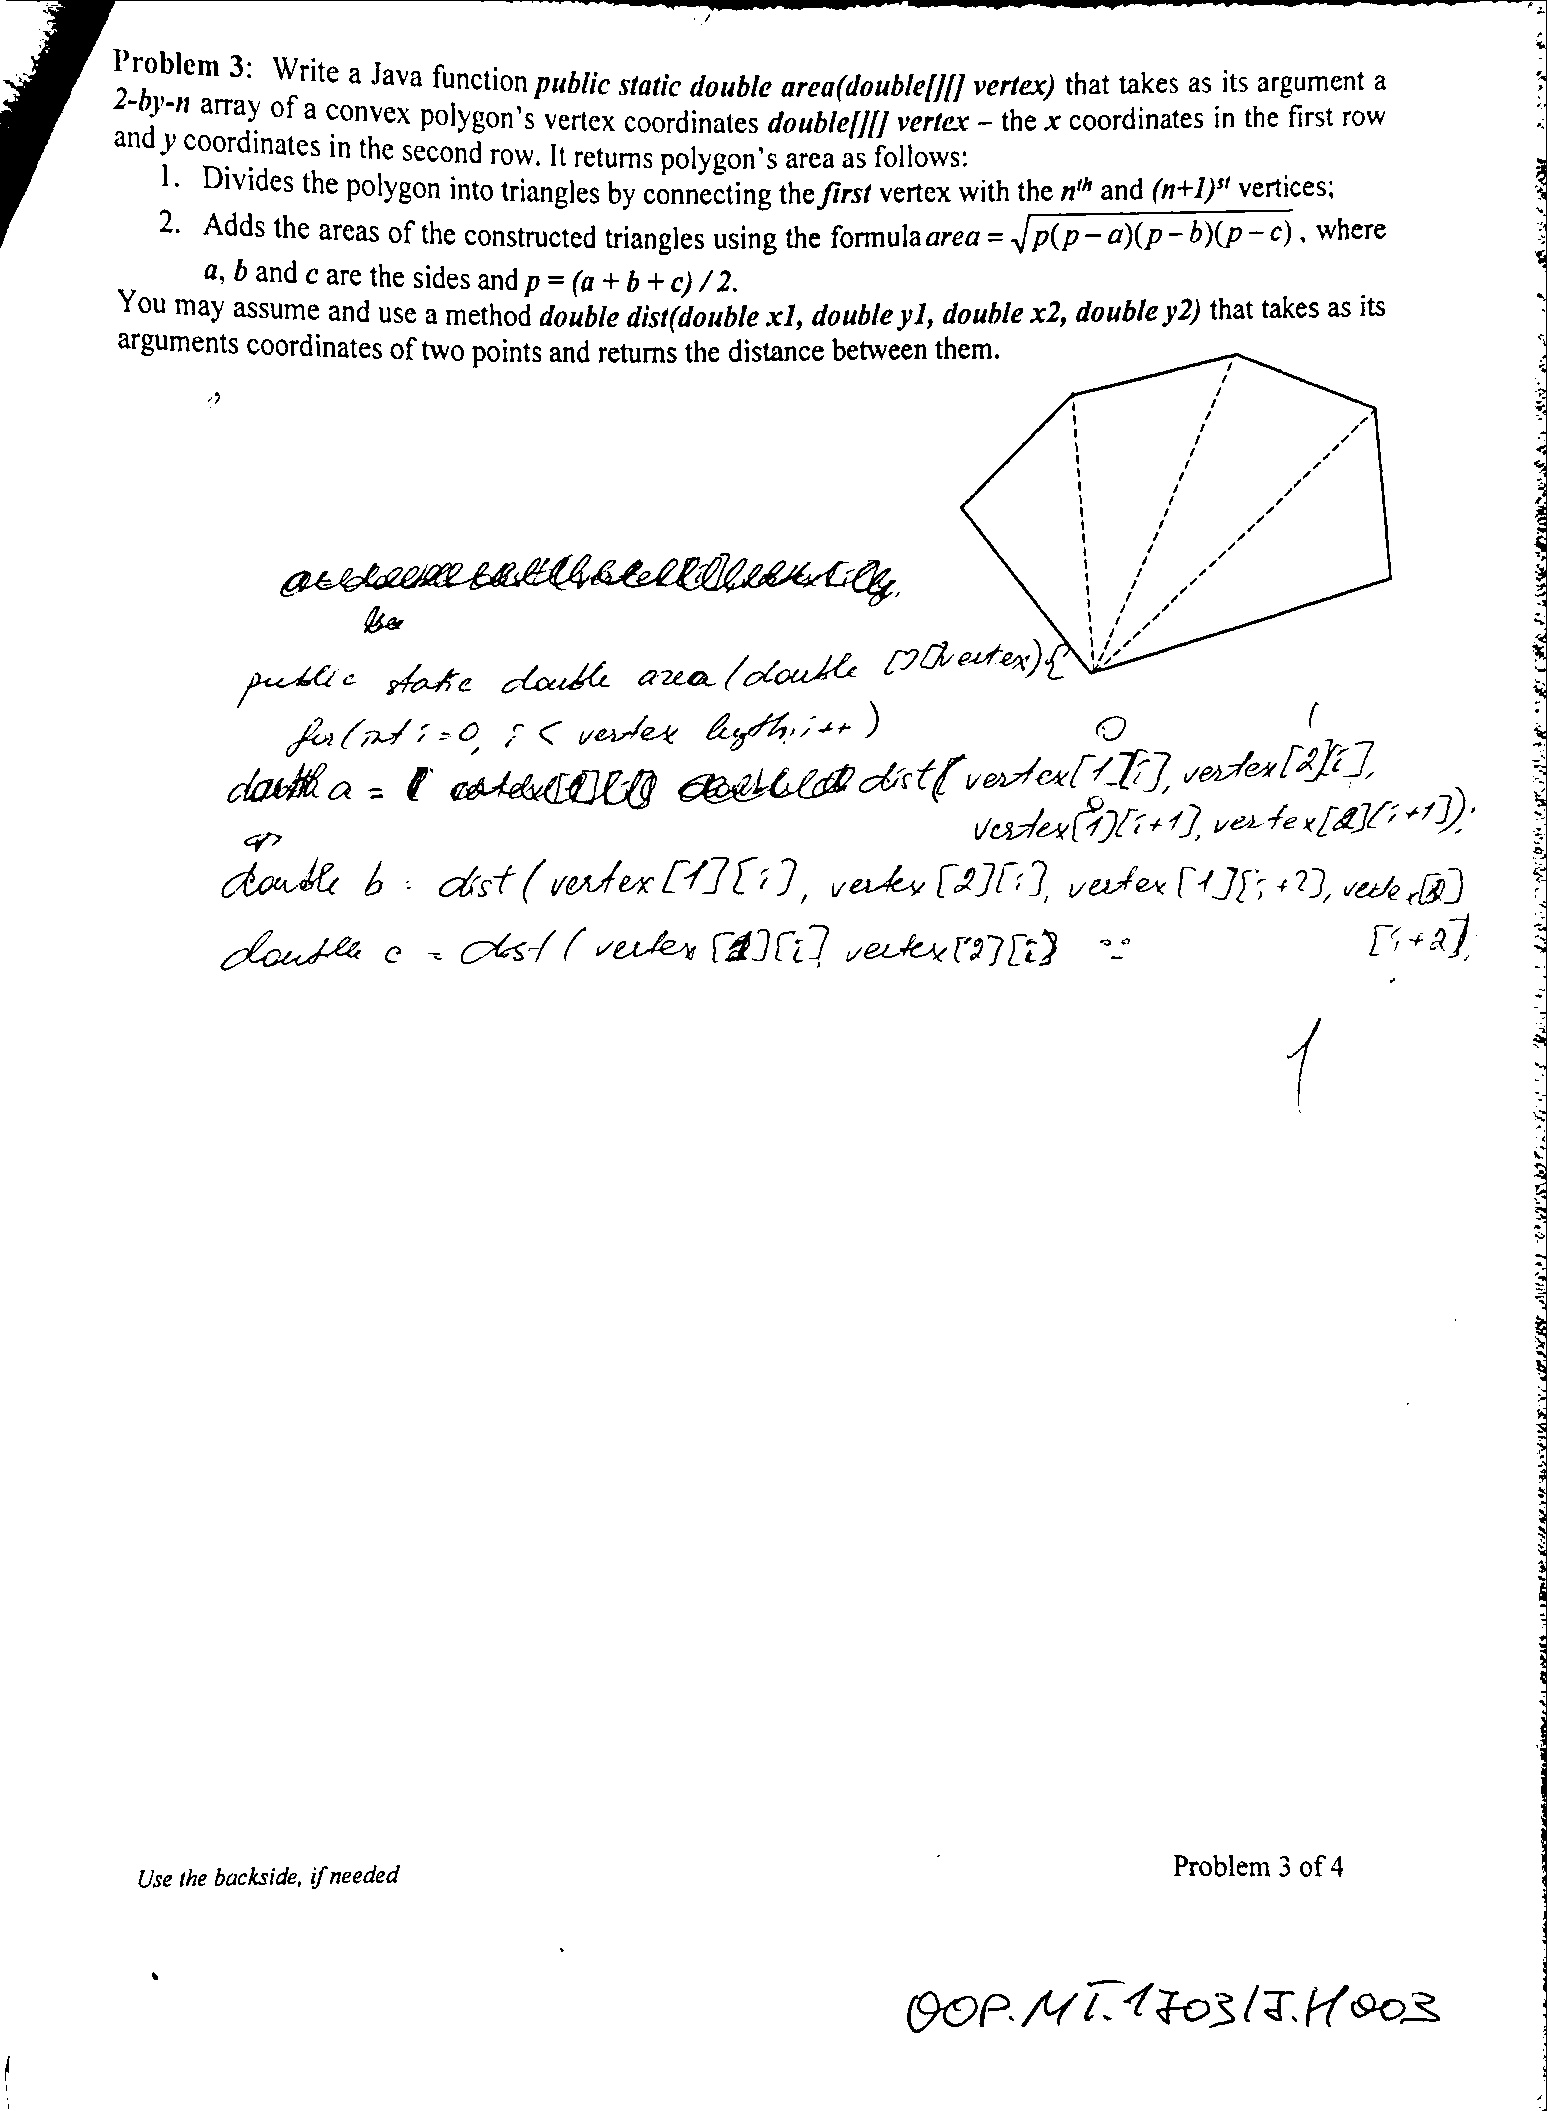 Problem 3: Write a Java function public static double area(double[][] vertex) that takes as its argument a
2-by-n array of a convex polygon's vertex coordinates double[][] vertex – the x coordinates in the first row
and y coordinates in the second row. It returns polygon's area as follows:
1. Divides the polygon into triangles by connecting the first vertex with the nth and (n+1)st vertices;
2. Adds the areas of the constructed triangles using the formula area = √p(p – a)(p – b)(p – c) , where
a, b and c are the sides and p = (a + b + c) / 2.
You may assume and use a method double dist(double x1, double y1, double x2, double y2) that takes as its
arguments coordinates of two points and returns the distance between them.
public static double area (double [][] vertex) {
for (int i = 0, i < vertex length; i++)
0 1
double a = dist( vertex[1][i], vertex[2][i],
0
vertex[1][i+1], vertex[2][i+1]);
double b = dist ( vertex [1][i], vertex [2][i], vertex [1][i+2], vertex[2]
[i+2],
double c = dist ( vertex [1][i] vertex [2][i]
1
Use the backside, if needed
Problem 3 of 4
OOP.MT.1703/J.H003